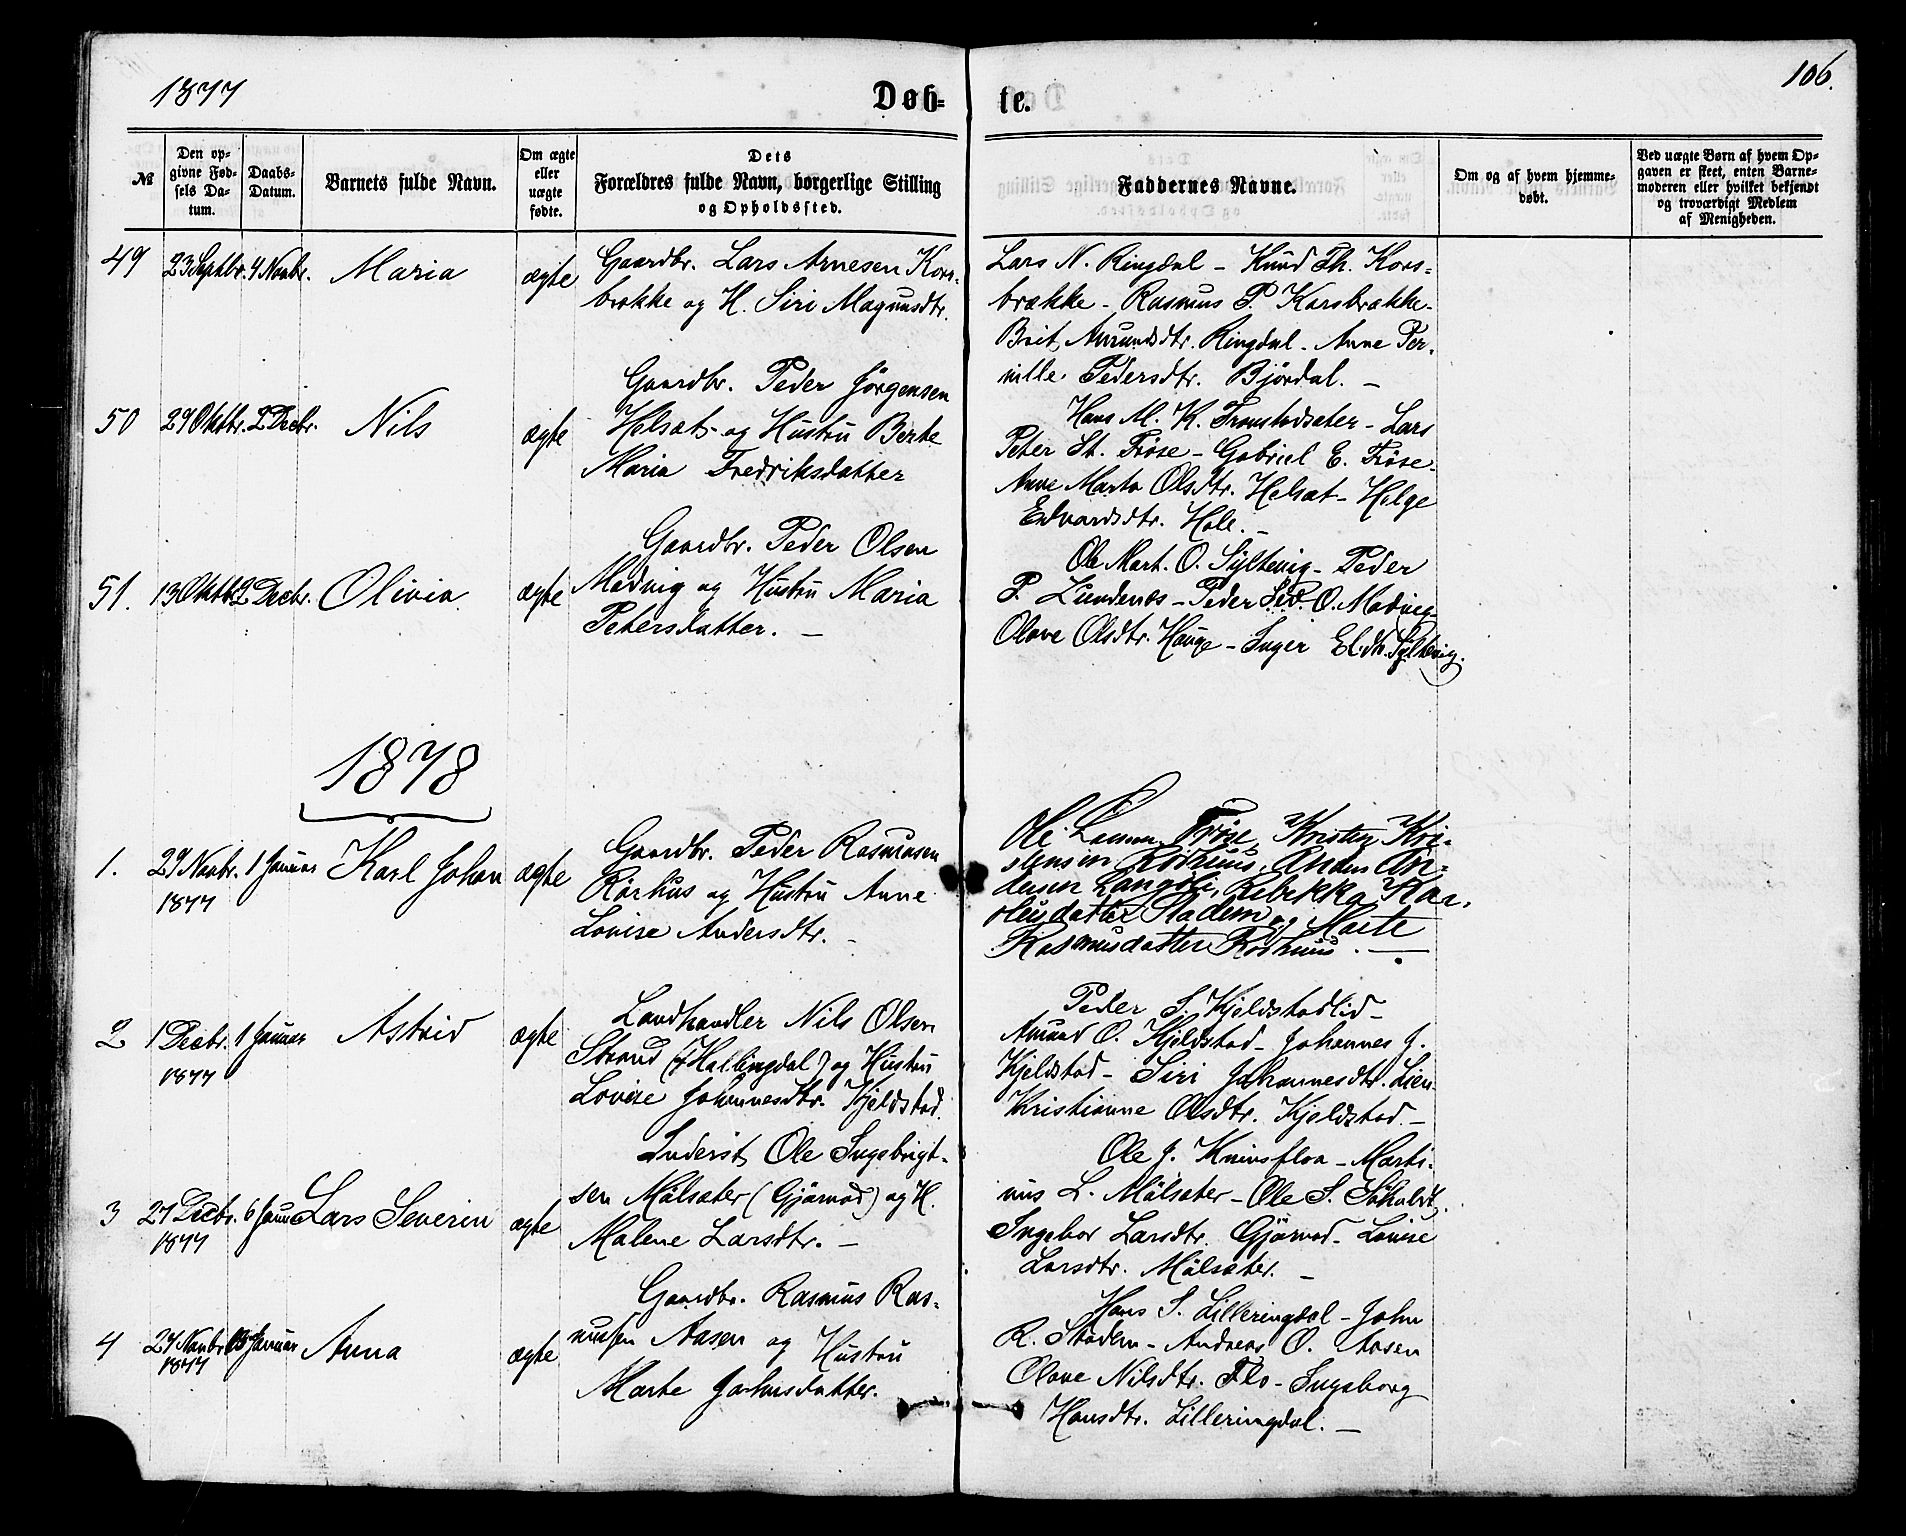 1877
Døb-
te.
106.
№
Den op-
givne Fød-
sels Da-
tum.
Daabs-
Datum.
Barnets fulde Navn.
Om ægte
eller
uægte
fødte.
Dets
Forældres fulde Navn, borgerlige Stilling
og Opholdssted.
Faddernes Navne.
Om og af hvem hjemme-
døbt.
Ved uægte Børn af hvem Op-
gaven er skeet, enten Barne-
moderen eller hvilket bekjendt
og troværdigt Medlem
af Menigheden.
49 23 Septbr. 4 Novbr. Maria ægte
Gaardbr. Lars Arnesen Kors-
brække og H. Siri Magnusdtr.
Lars N. Ringdal - Knud Th. Kors-
brække - Rasmus P. Korsbrække -
Brit Amundsdtr. Ringdal - Anne Per-
nille Pedersdtr. Bjørdal. -
50 29 Oktbr. 2 Decbr. Nils ægte
Gaardbr. Peder Jörgensen
Helsæt og Hustru Berte
Maria Fredriksdatter
Hans M. K. Tronstadsæter - Lars
Peter St. Fröse - Gabriel E. Fröse -
Anne Marta Olsdtr. Helsæt - Helge
Edvardsdtr. Hole. -
51. 13 Oktbr 2 Decbr. Olivia. ægte
Gaardbr. Peder Olsen
Medvig og Hustru Maria
Petersdatter. -
Ole Mart. O. Syltevig - Peder
P. Lundenes - Peder O. Medvig
Olave Olsdtr. Hauge - Inger El.dtr. Syltevig.
1878
1. 29 Novbr. 1 Januar Karl Johan ægte
1877
Gaardbr. Peder Rasmusen
Rörhus og Hustru Anne
Lovise Andersdtr. -
Ole Larsen Fröse, Kristen Kri-
stensen Rörhuus, Anders An-
dersen Langöli, Rebekka Kar-
olusdatter Stadem og Marte
Rasmusdatter Rörhuus. -
2 1 Decbr. 1 Januar Astrid ægte
1877
Landhandler Nils Olsen
Strand (Hallingdal) og Hustru
Lovise Johannesdtr. Kjeldstad.
Peder S. Kjeldstadlid -
Amund O. Kjeldstad - Johannes J.
Kjeldstad - Siri Johannesdtr. Lien -
Kristianne Olsdtr. Kjeldstad. -
3 27 Decbr. 6 Januar Lars Severin ægte
1877
Inderst Ole Ingebrigt-
sen Målsæter (Gjærvad) og H.
Malene Larsdtr. -
Ole J. Knivsfloa - Marti-
nus L. Målsæter - Ole S. Söholdt.
Ingebor Larsdtr. Gjærvad - Lovise
Larsdtr. Målsæter. -
4 24 Novbr 13 Januar Anna ægte
1877
Gaardbr. Rasmus Ras-
mussen Aasen og Hustru
Marte Johnsdatter.
Hans S. Lilleringdal - John
R. Stadem - Andreas O. Aasen
Olave Nilsdtr. Flo - Ingeborg
Hansdtr. Lilleringdal. -